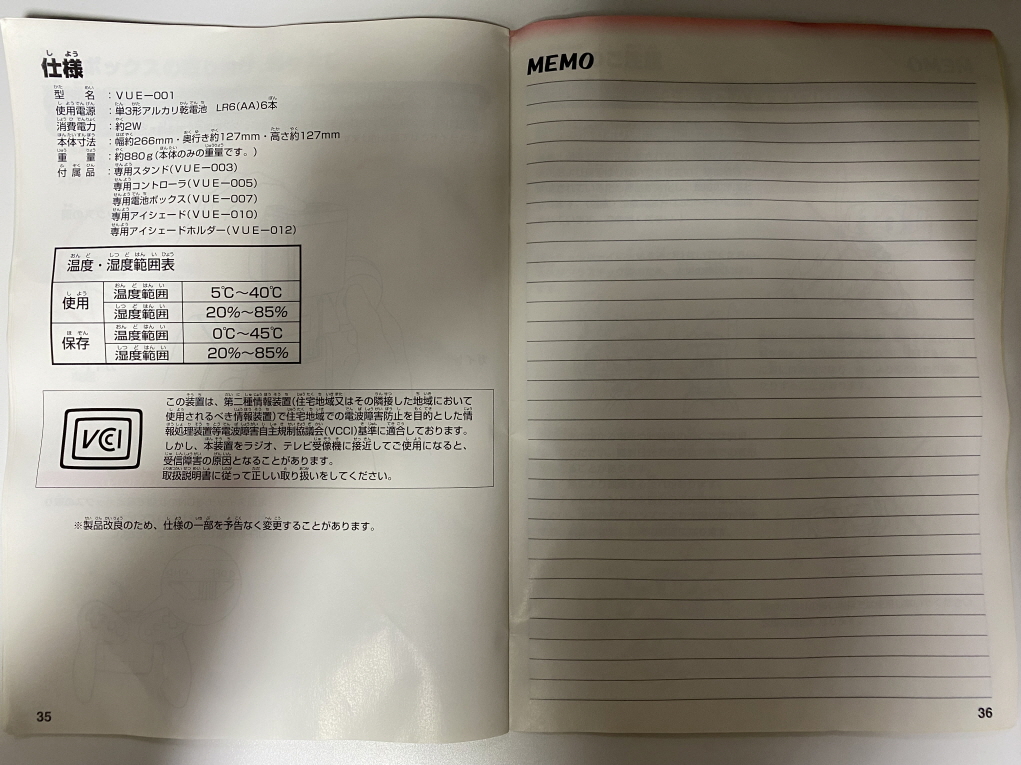 仕様
型名：VUE－001
使用電源：単3形アルカリ乾電池 LR6(AA)6本
消費電力：約2W
本体寸法：幅約266mm・奥行き約127mm・高さ約127mm
重量：約880g(本体のみの重量です。)
付属品：専用スタンド(VUE－003)
専用コントローラ(VUE－005)
専用電池ボックス(VUE－007)
専用アイシェード(VUE－010)
専用アイシェードホルダー(VUE－012)
温度・湿度範囲表
使用 温度範囲 5℃～40℃
湿度範囲 20%～85%
保存 温度範囲 0℃～45℃
湿度範囲 20%～85%
VCI
この装置は、第二種情報装置(住宅地域又はその隣接した地域において
使用されるべき情報装置)で住宅地域での電波障害防止を目的とした情
報処理装置等電波障害自主規制協議会(VCCI)基準に適合しております。
しかし、本装置をラジオ、テレビ受像機に近接してご使用になると、
受信障害の原因となることがあります。
取扱説明書に従って正しい取り扱いをしてください。
※製品改良のため、仕様の一部を予告なく変更することがあります。
35
MEMO
36